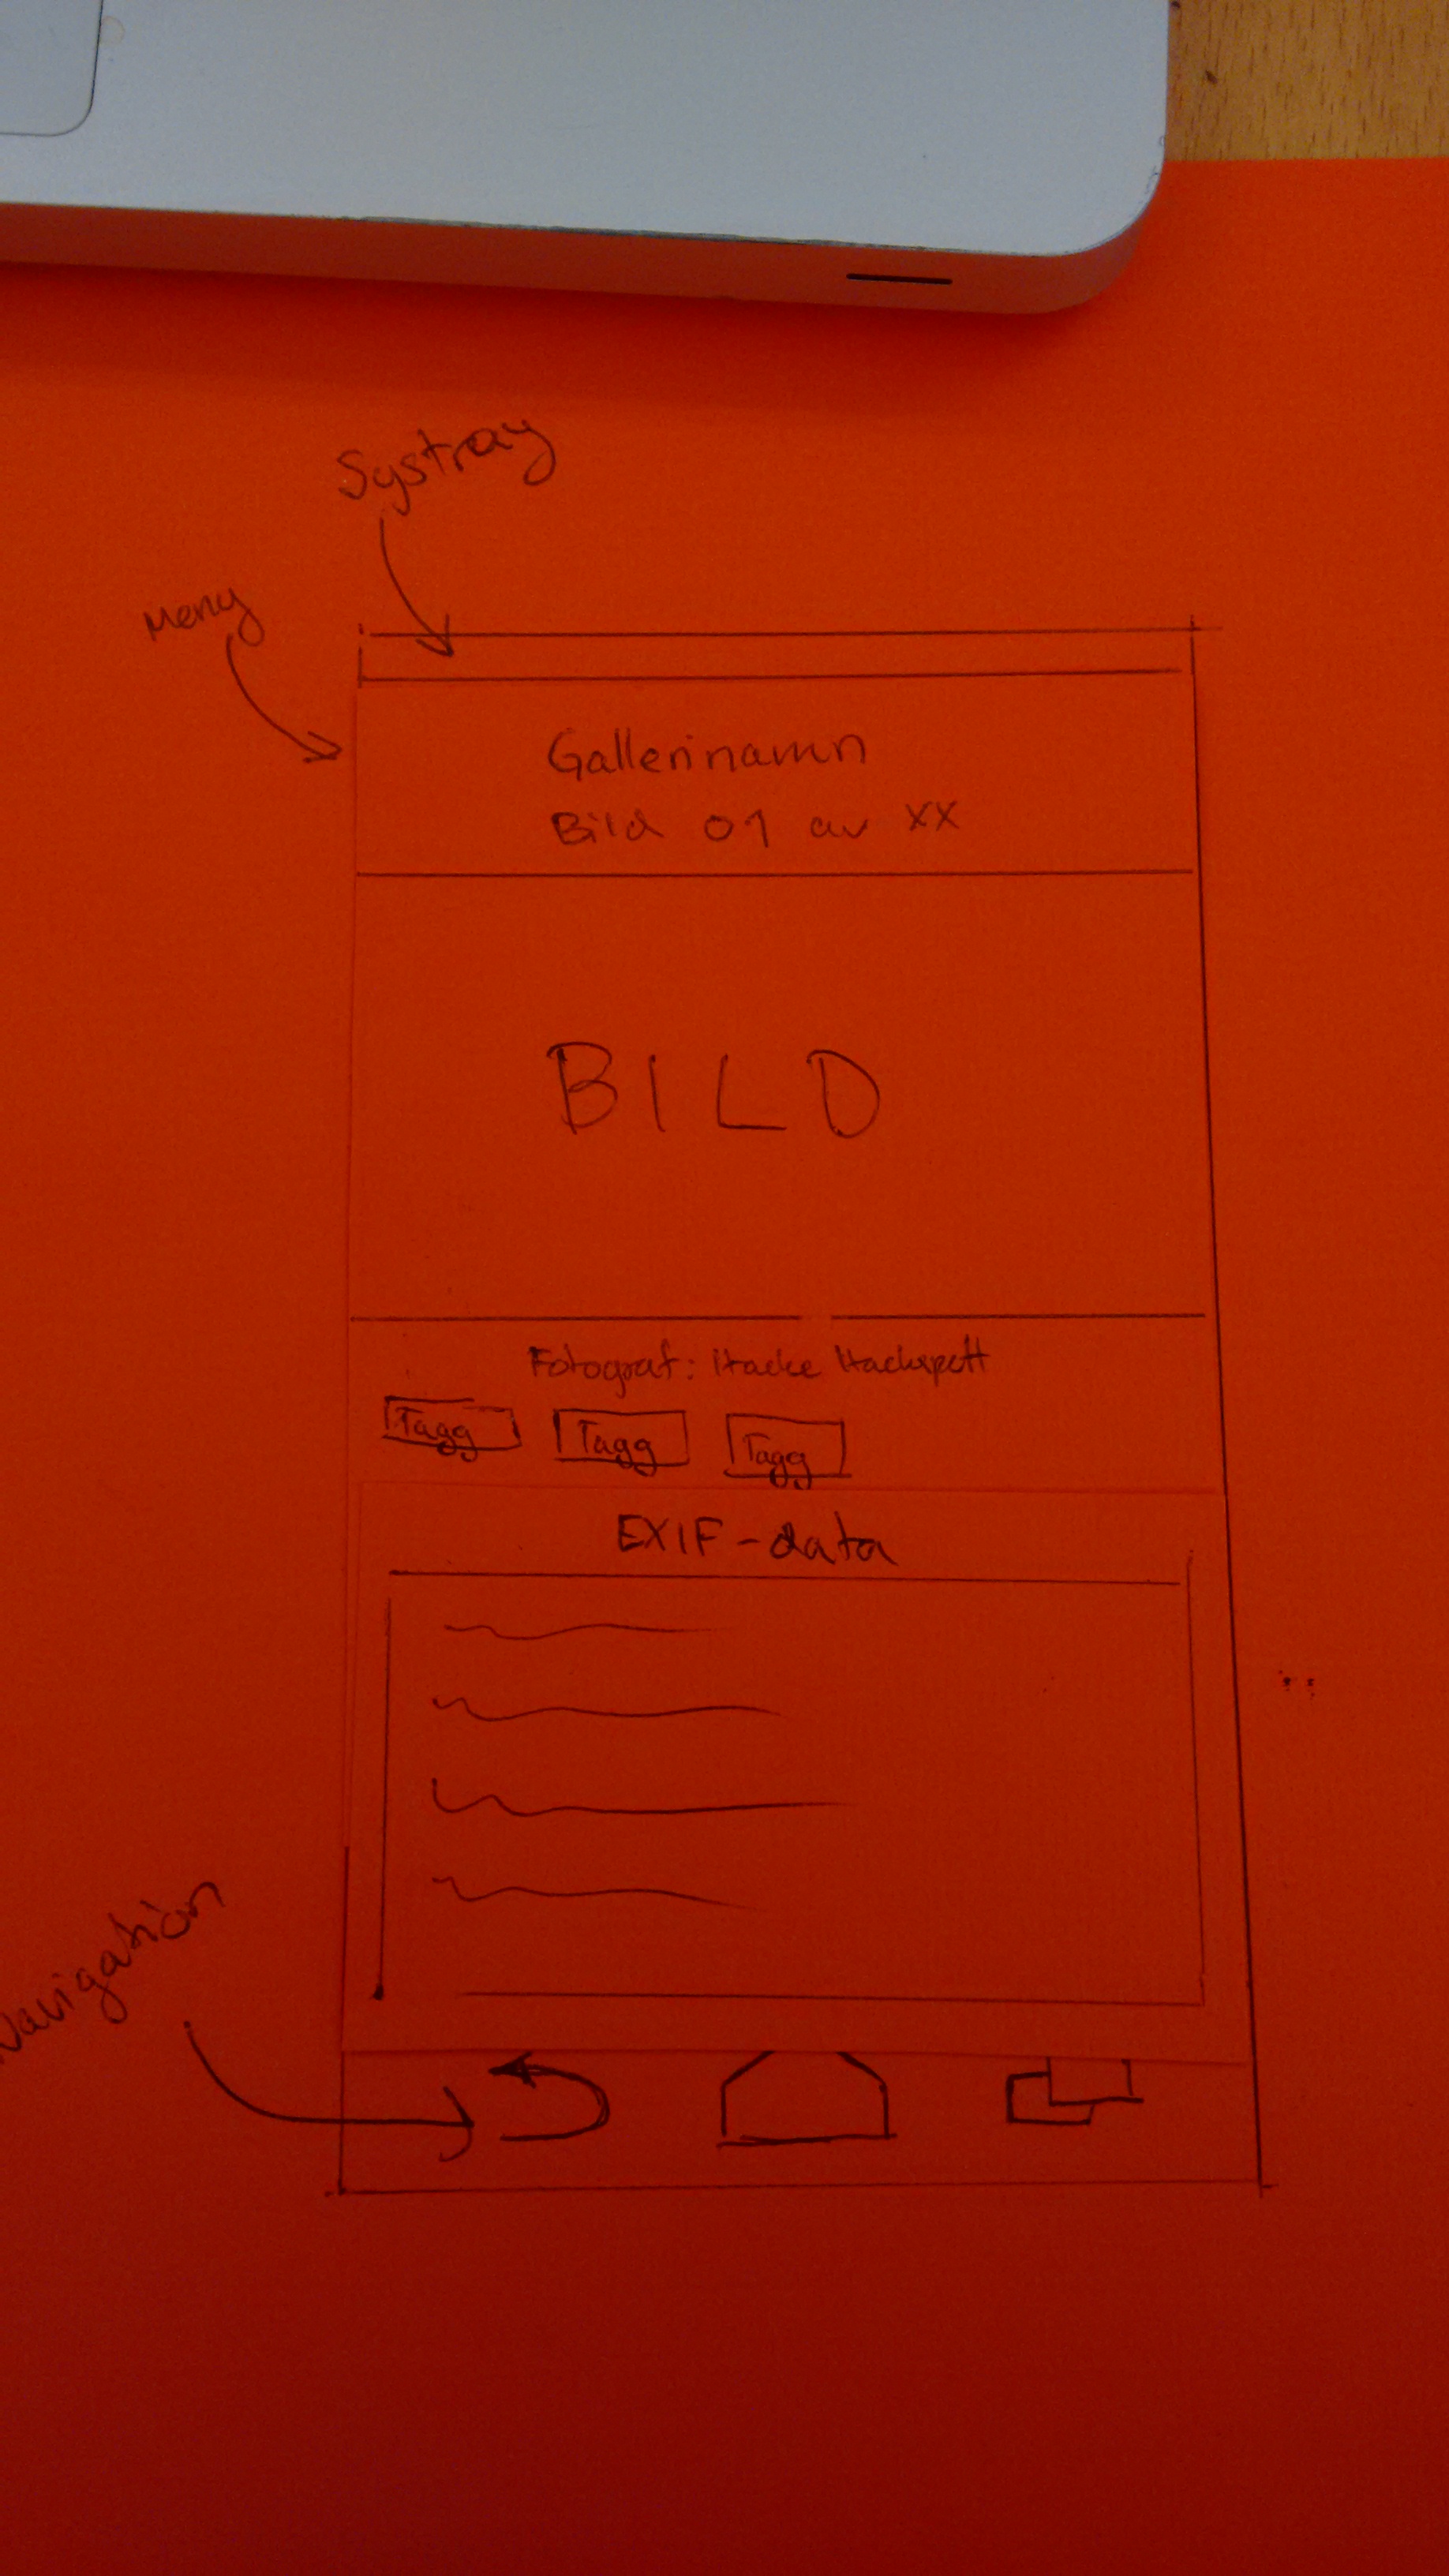 Systray
Meny
Gallerinamn
Bild 01 av XX
BILD
Fotograf: Hacke Hackspett
Tagg
Tagg
Tagg
EXIF-data
Navigation